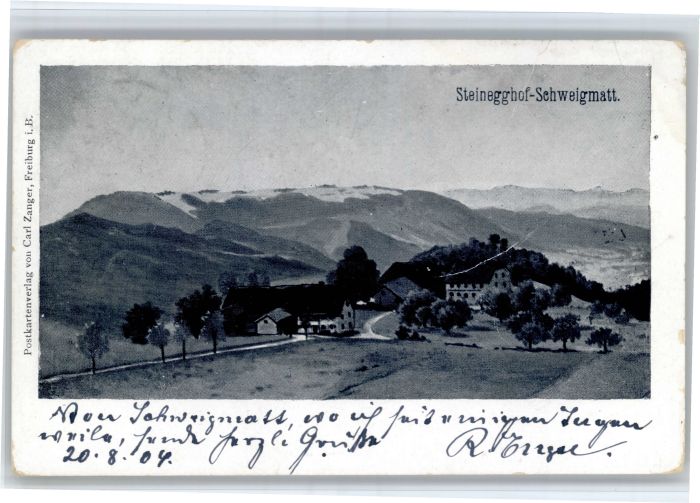 Steinegghof-Schweigmatt.
Postkartenverlag von Carl Zanger, Freiburg i. B.
Von Schweigmatt, wo ich seit einigen Tagen
weile, sende herzli Grüße
20.8.04.